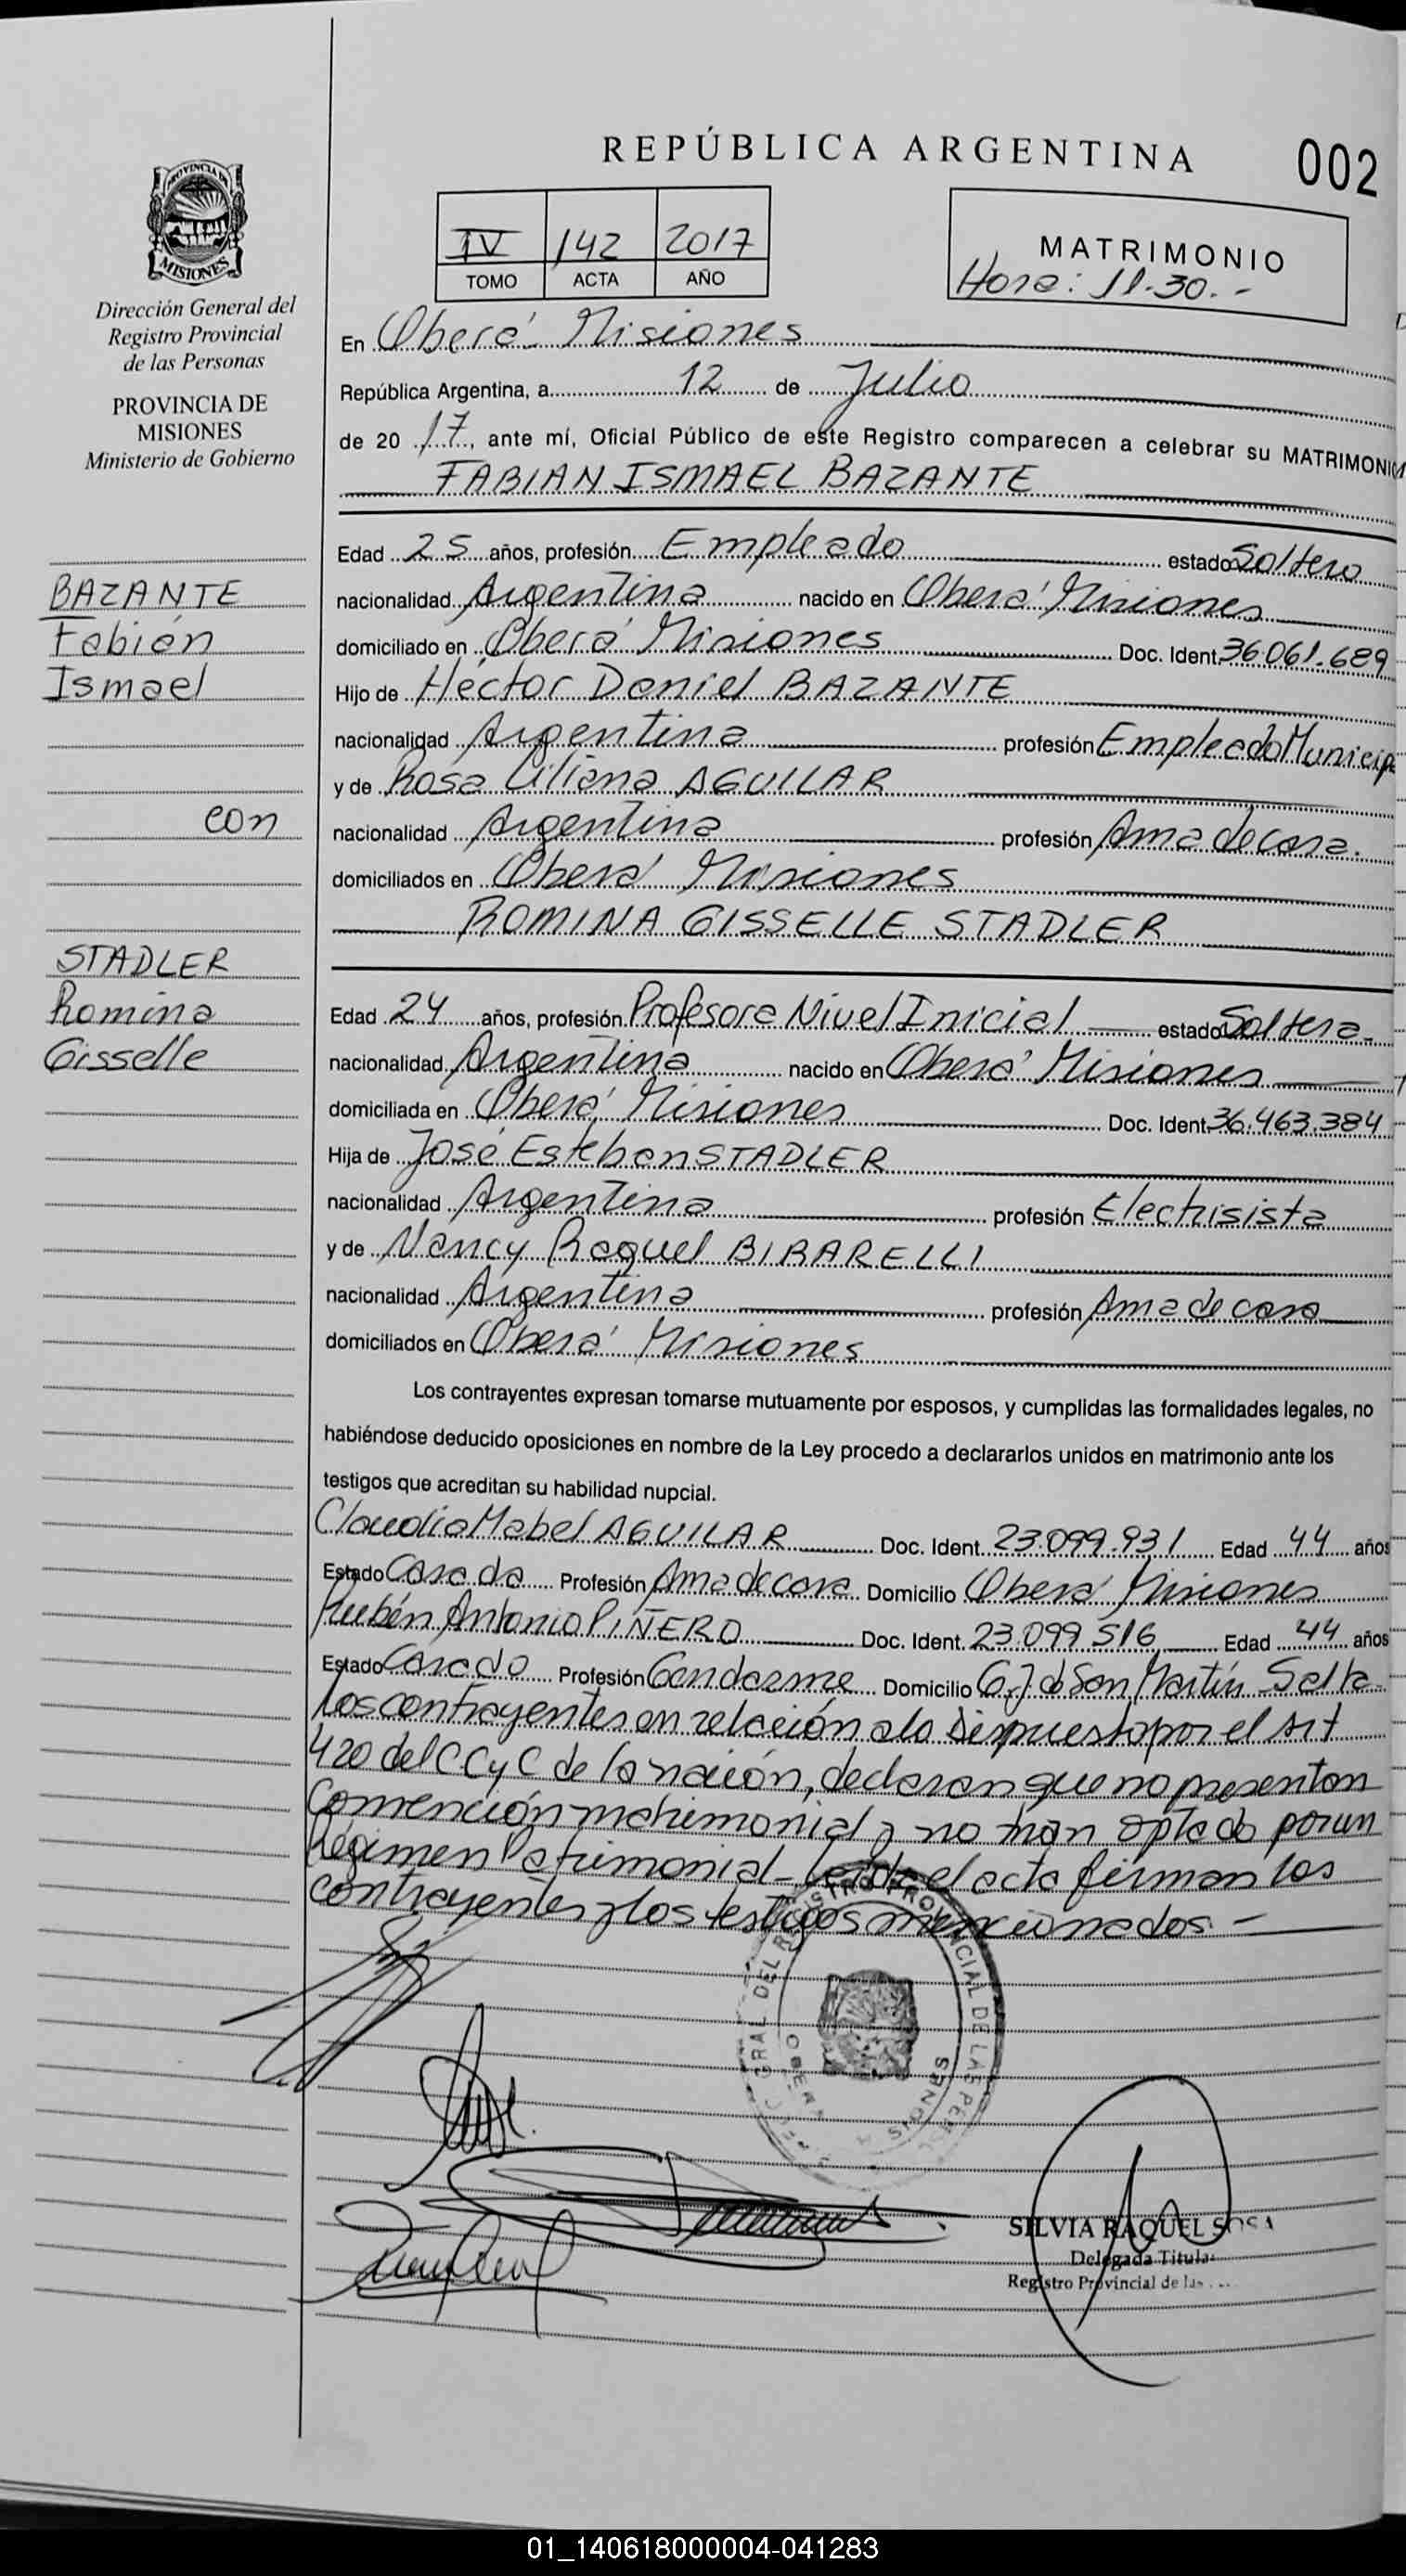 REPÚBLICA ARGENTINA
002
PROVINCIA DE
MISIONES
Dirección General del
Registro Provincial
de las Personas
PROVINCIA DE
MISIONES
Ministerio de Gobierno
IV 142 2017
TOMO ACTA AÑO
MATRIMONIO
Hora: 11.30.-
En Oberá Misiones
República Argentina, a 12 de Julio
de 20 17, ante mí, Oficial Público de este Registro comparecen a celebrar su MATRIMONIO
FABIAN ISMAEL BAZANTE
Edad 25 años, profesión Empleado estado Soltero
nacionalidad Argentina nacido en Oberá Misiones
domiciliado en Oberá Misiones Doc. Ident. 36.061.689
Hijo de Héctor Daniel BAZANTE
nacionalidad Argentina profesión Empleado Municip
y de Rosa Liliana AGUILAR
nacionalidad Argentina profesión Ama de casa.
domiciliados en Oberá Misiones
ROMINA GISSELLE STADLER
Edad 24 años, profesión Profesora Nivel Inicial estado Soltera.
nacionalidad Argentina nacido en Oberá Misiones
domiciliada en Oberá Misiones Doc. Ident. 36.463.384
Hija de José Esteban STADLER
nacionalidad Argentina profesión Electrisista
y de Nancy Raquel BIBARELLI
nacionalidad Argentina profesión Ama de casa
domiciliados en Oberá Misiones
BAZANTE
Fabián
Ismael
con
STADLER
Romina
Gisselle
Los contrayentes expresan tomarse mutuamente por esposos, y cumplidas las formalidades legales, no
habiéndose deducido oposiciones en nombre de la Ley procedo a declararlos unidos en matrimonio ante los
testigos que acreditan su habilidad nupcial.
Claudia Mabel AGUILAR Doc. Ident. 23.099.931 Edad 44 años
Estado Casada Profesión Ama de casa Domicilio Oberá Misiones
Rubén Antonio PIÑERO Doc. Ident. 23.099 516 Edad 44 años
Estado Casado Profesión Gendarme Domicilio San Martín Salta.
Los contrayentes en relación a lo dispuesto por el Art
420 del CCyC de la nación, declaran que no presentan
Convención matrimonial y no han optado por un
Régimen Patrimonial- Leída el acta firman los
contrayentes y los testigos mencionados.-
GRAL DEL REGISTRO PROVINCIAL DE LAS PER
OBERA MISIONES
SILVIA RAQUEL SOSA
Delegada Titular
Registro Provincial de las
01_140618000004-041283